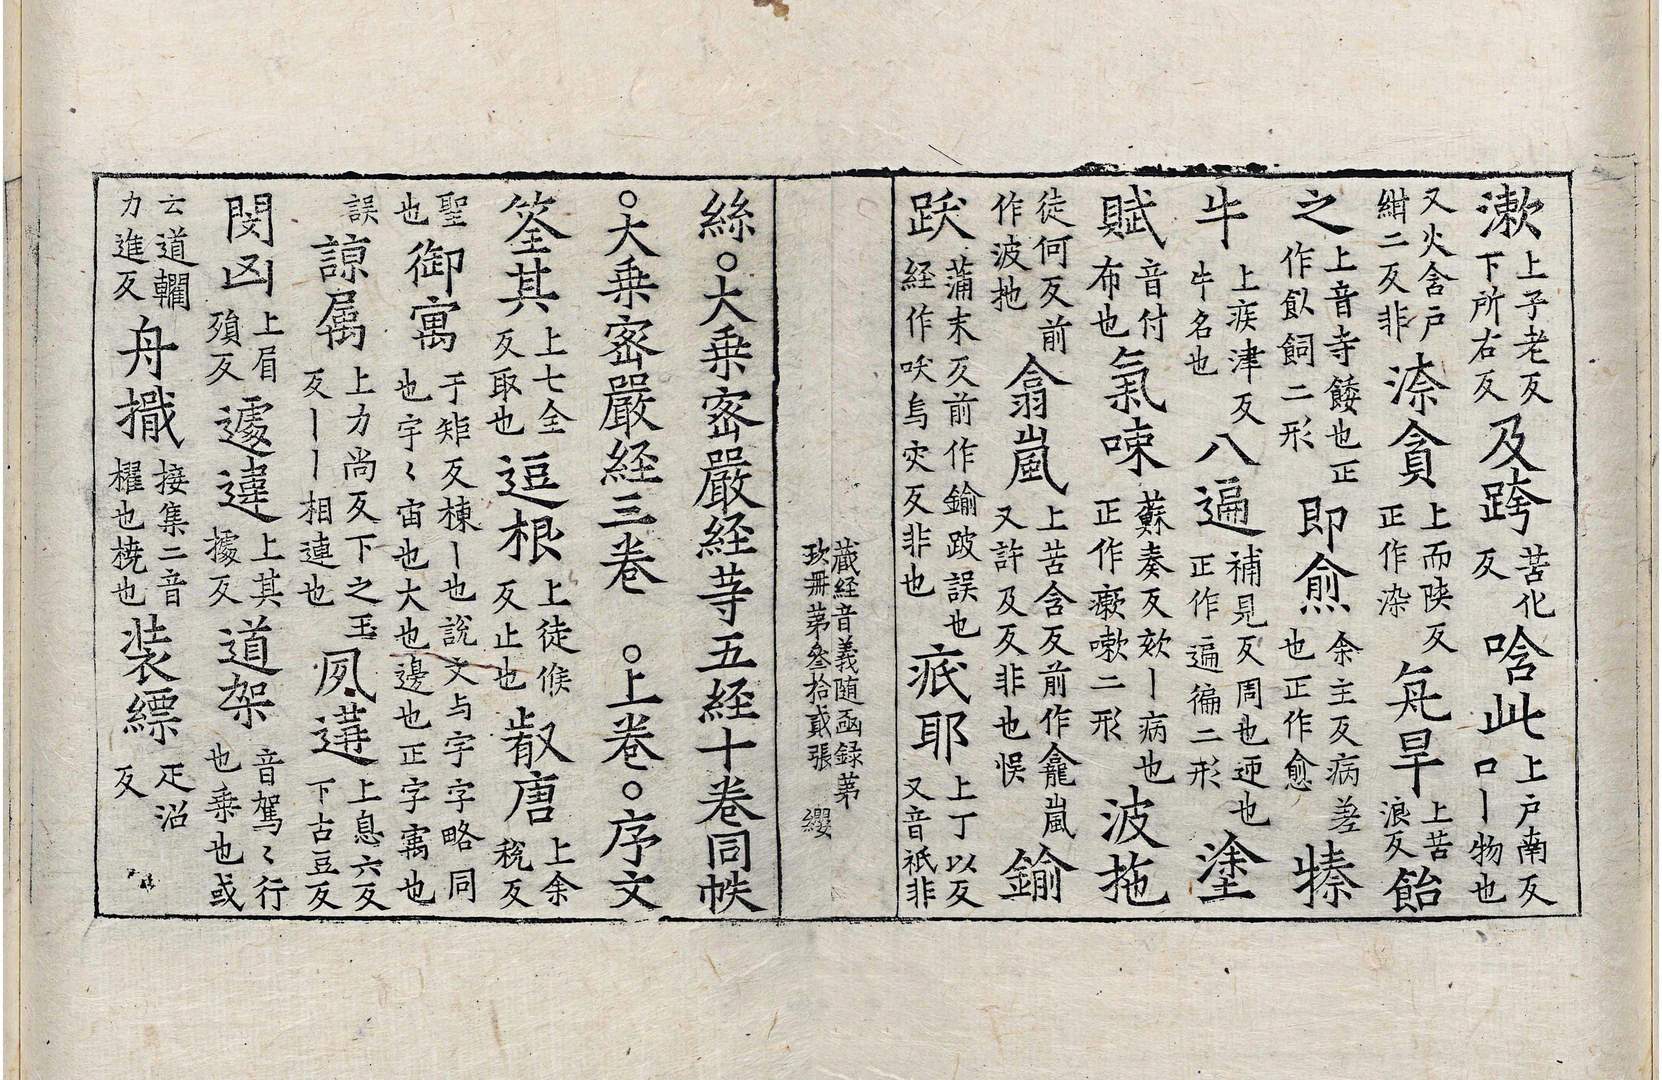 漱上子老反下所右反及跨苦化反唅此上戸南反口丨物也
又火含戸紺二反非渿貪上而陝反正作染兂旱上苦浪反飴
之上音寺餧也正作飤飼二形即愈余主反病差也正作愈㯡
牛上疾津反牛名也八遍補見反周也迊也正作遍徧二形塗
賦音付布也氣㖩蘇奏反欬丨病也正作瘶嗽二形波拖
徒何反前作波扡㑹嵐上苦含反前作龕嵐又許及反非也悮鍮
跋蒲末反又前作鍮跛誤也経作吠烏穾反非也疧耶上丁以反又音祇非
藏経音義随函録第玖冊第叄拾貳張 纓
絲○大乗宻嚴経䓁五経十卷同帙
○大乗宻嚴経三卷 ○上卷○序文
筌其上七全反取也逗根上徒候反止也叡唐上余税反
聖也御㝢于矩反棟丨也說文与字字略同也宇〻宙也大也邊也正字㝢也
誤諒属上力尚反下之玉反丨丨相連也夙遘上息六反下古豆反
閔凶上眉殞反遽違上其據反道架音駕〻行也乗也或
云道轥力進反舟檝接集二音櫂也橈也装縹疋沼反